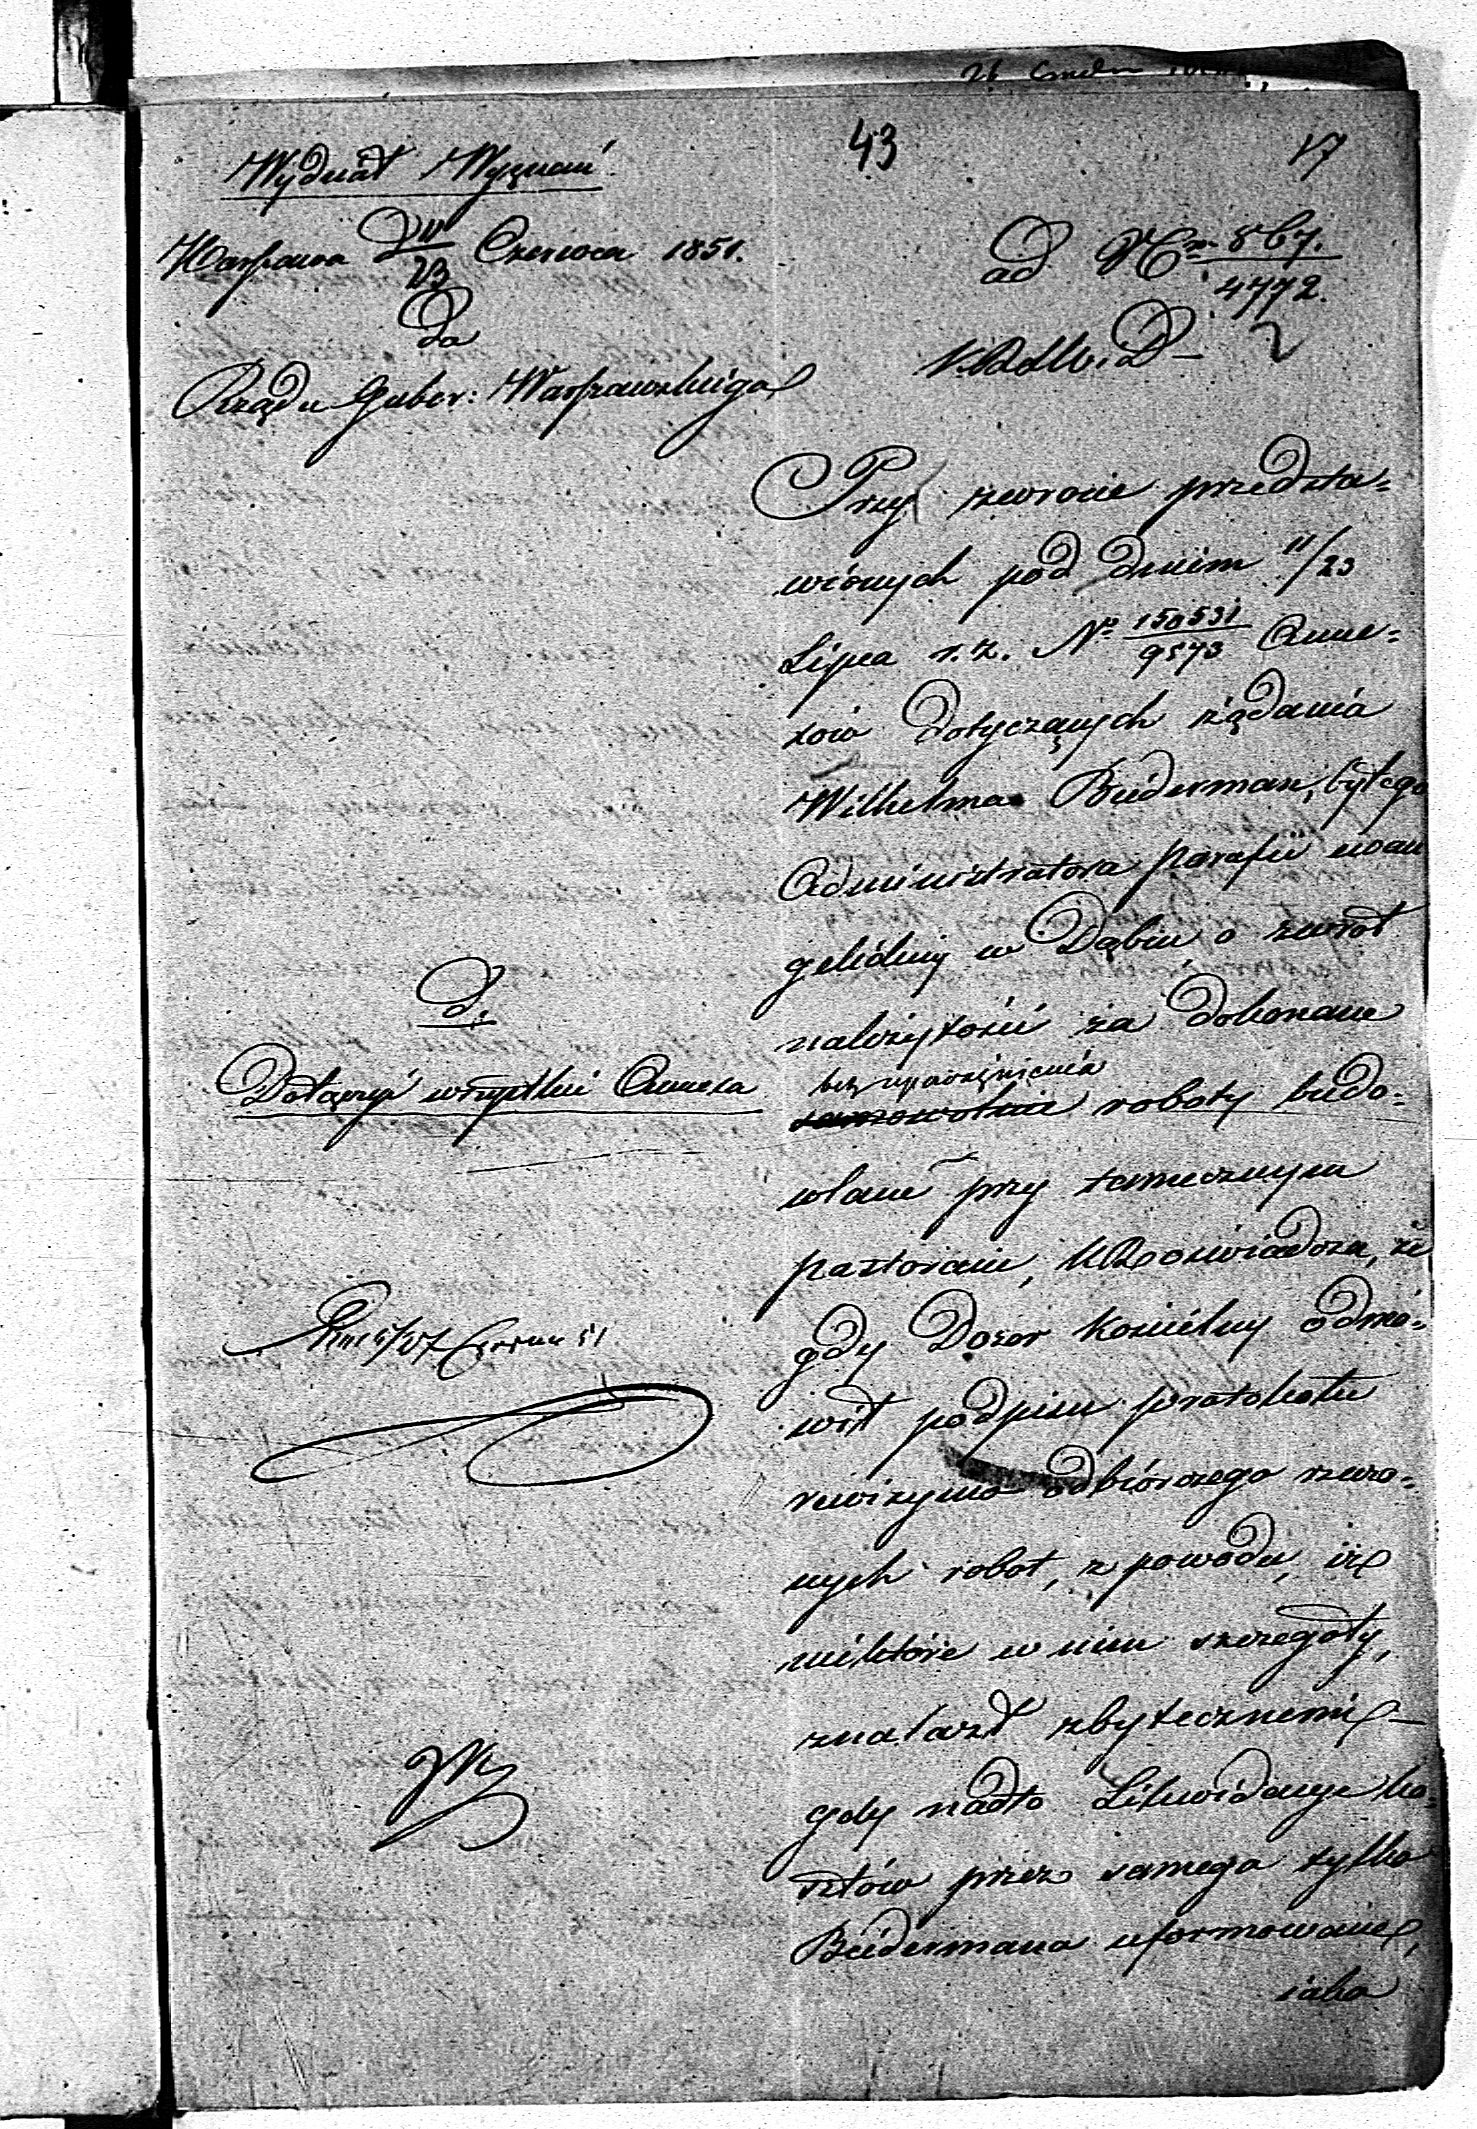 43
17
Wydział Wyznań
Warszawa d 11/23 Czerwca 1851.
Do
Rządu Guber: Warszawskiego
ad N 867./4772.
Przy zwrocie przedsta=
wionych pod dniem 11/23
Lipca r. z. No 150531/9573 Anne=
xów dotyczących żądania
Wilhelma Biederman, byłego
Administratora parafii ewan
gelickiej w Dąbiu, o zwrot
należytości za dokonane
bez upoważnienia
samowolnie roboty budo=
wlane przy tamecznym
pastoracie, KR oświadcza, że
gdy Dozor kościelny odmó=
wił podpisu protokołu
rewizyino odbiorczego rzeczo=
nych robot, z powodu, iż
niektóre w nim szczegoły,
znalazł zbytecznemi –
gdy nadto Likwidacye ko=
sztów przez samego tylko
Biedermana uformowane,
iako
d.
Dołączyć wszystkie Annexa